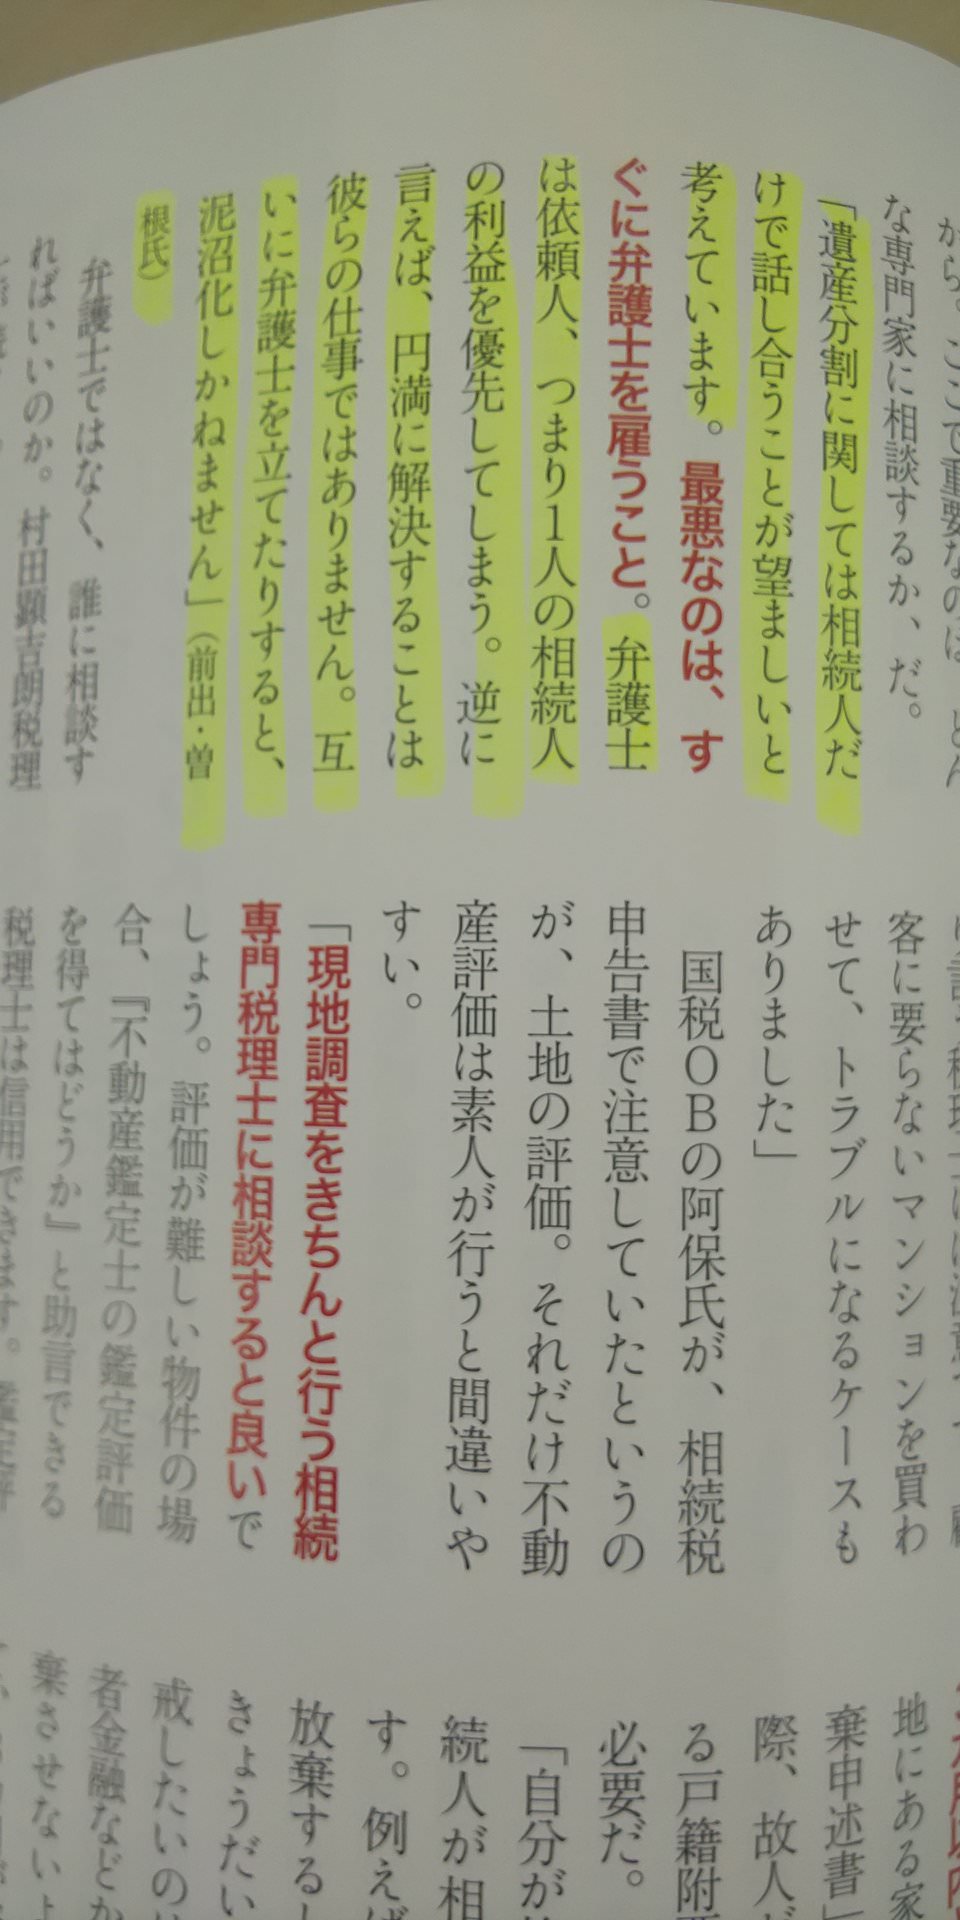 な専門家に相談するか、だ。
「遺産分割に関しては相続人だ
けで話し合うことが望ましいと
考えています。最悪なのは、す
ぐに弁護士を雇うこと。弁護士
は依頼人、つまり1人の相続人
の利益を優先してしまう。逆に
言えば、円満に解決することは
彼らの仕事ではありません。互
いに弁護士を立てたりすると、
泥沼化しかねません」（前出・曽
根氏）
弁護士ではなく、誰に相談す
ればいいのか。村田顕吉朗税理
客に要らないマンションを買わ
せて、トラブルになるケースも
ありました」
国税OBの阿保氏が、相続税
申告書で注意していたというの
が、土地の評価。それだけ不動
産評価は素人が行うと間違いや
すい。
「現地調査をきちんと行う相続
専門税理士に相談すると良いで
しょう。評価が難しい物件の場
合、『不動産鑑定士の鑑定評価
を得てはどうか』と助言できる
税理士は信用できます。
地にある家
棄申述書」
際、故人
る戸籍附
必要だ。
「自分が
続人が相
す。例えば
放棄する
きょうだい
戒したいの
者金融など
棄させない